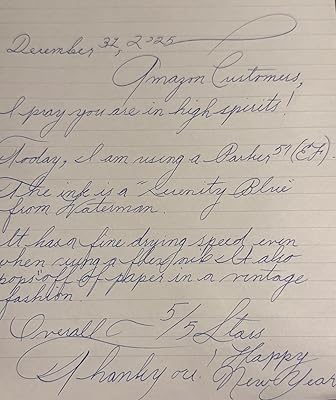 December 31, 2025
Amazon Customers,
I pray you are in high spirits!
Today, I am using a Parker 51 (EF).
The ink is a "Serenity Blue"
from Waterman.
It has a fine drying speed even
when using a flex nib. It also
"pops" off of paper in a vintage
fashion.
Overall 5/5 Stars
Thank you! Happy
New Year